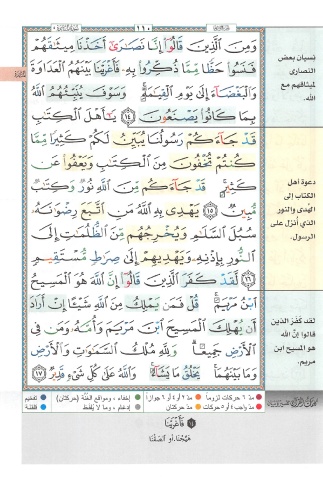 ١١٠
وَمِنَ ٱلَّذِينَ قَالُوٓا۟ إِنَّا نَصَٰرَىٰٓ أَخَذْنَا مِيثَٰقَهُمْ
فَنَسُوا۟ حَظًّا مِّمَّا ذُكِّرُوا۟ بِهِۦ فَأَغْرَيْنَا بَيْنَهُمُ ٱلْعَدَاوَةَ
وَٱلْبَغْضَآءَ إِلَىٰ يَوْمِ ٱلْقِيَٰمَةِ ۚ وَسَوْفَ يُنَبِّئُهُمُ ٱللَّهُ
بِمَا كَانُوا۟ يَصْنَعُونَ ١٤ يَٰٓأَهْلَ ٱلْكِتَٰبِ
قَدْ جَآءَكُمْ رَسُولُنَا يُبَيِّنُ لَكُمْ كَثِيرًا مِّمَّا
كُنتُمْ تُخْفُونَ مِنَ ٱلْكِتَٰبِ وَيَعْفُوا۟ عَن
كَثِيرٍ ۚ قَدْ جَآءَكُم مِّنَ ٱللَّهِ نُورٌ وَكِتَٰبٌ
مُّبِينٌ ١٥ يَهْدِى بِهِ ٱللَّهُ مَنِ ٱتَّبَعَ رِضْوَٰنَهُۥ
سُبُلَ ٱلسَّلَٰمِ وَيُخْرِجُهُم مِّنَ ٱلظُّلُمَٰتِ إِلَى
ٱلنُّورِ بِإِذْنِهِۦ وَيَهْدِيهِمْ إِلَىٰ صِرَٰطٍ مُّسْتَقِيمٍ
١٦ لَّقَدْ كَفَرَ ٱلَّذِينَ قَالُوٓا۟ إِنَّ ٱللَّهَ هُوَ ٱلْمَسِيحُ
ٱبْنُ مَرْيَمَ ۚ قُلْ فَمَن يَمْلِكُ مِنَ ٱللَّهِ شَيْـًٔا إِنْ أَرَادَ
أَن يُهْلِكَ ٱلْمَسِيحَ ٱبْنَ مَرْيَمَ وَأُمَّهُۥ وَمَن فِى
ٱلْأَرْضِ جَمِيعًا ۗ وَلِلَّهِ مُلْكُ ٱلسَّمَٰوَٰتِ وَٱلْأَرْضِ
وَمَا بَيْنَهُمَا ۚ يَخْلُقُ مَا يَشَآءُ ۚ وَٱللَّهُ عَلَىٰ كُلِّ شَىْءٍ قَدِيرٌ ١٧
نسيان بعض
النصارى
لميثاقهم مع
الله.
دعوة أهل
الكتاب إلى
الهدى والنور
الذي أنزل على
الرسول.
لقد كفر الذين
قالوا إن الله
هو المسيح ابن
مريم.
مدّ ٦ حركات لزوماً
مدّ ٢ أو ٤ أو ٦ جوازاً
إخفاء، ومواقع الغُنَّة (حركتان)
تفخيم
مدّ واجب ٤ أو ٥ حركات
مدّ حركتان
إدغام، وما لا يُلفَظ
قلقلة
فَأَغْرَيْنَا
هيَّجنا، أو ألصَقنا